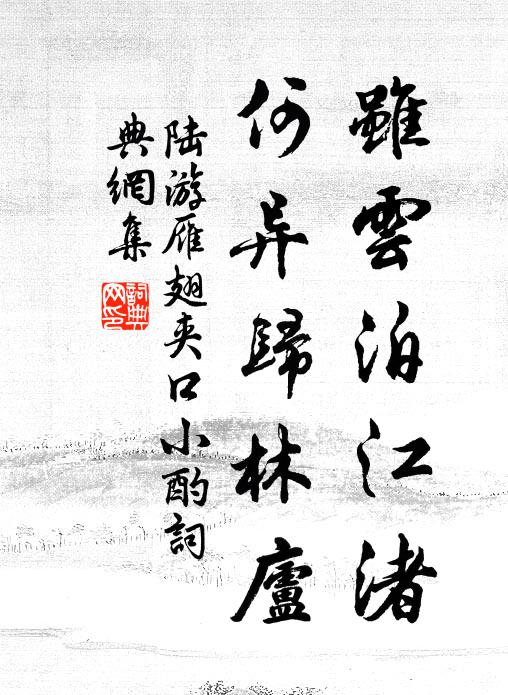 雖雲泊江渚
何异歸林廬
陆游雁翅夹口小酌詞
典網集
詞典
网印